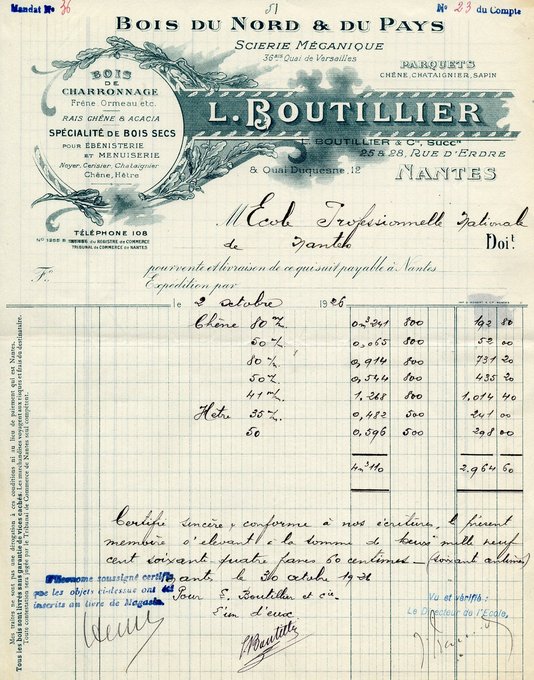 Mandat No 36
51
No 23 du Compte
BOIS DU NORD & DU PAYS
SCIERIE MÉCANIQUE
36 Quai de Versailles
PARQUETS
CHÊNE, CHATAIGNIER, SAPIN
BOIS
DE
CHARRONNAGE
Frêne Ormeau etc.
RAIS CHÊNE & ACACIA
SPÉCIALITÉ DE BOIS SECS
POUR ÉBENISTERIE
ET MENUISERIE
Noyer, Cerisier, Chataignier
Chêne, Hêtre
L. BOUTILLIER
L. BOUTILLIER & Cie, Succrs
25 & 28, RUE D'ERDRE
& Quai Duquesne, 12
NANTES
TÉLÉPHONE 108
DU REGISTRE DU COMMERCE
TRIBUNAL DE COMMERCE DE NANTES
M Ecole Professionnelle Nationale
de Nantes Doit
Fo
pour vente et livraison de ce qui suit payable à Nantes
Expédition par
le 2 octobre 1926
Chêne 80 m/m 0m3241 800 192 80
50 m/m 0,065 800 52 00
80 m/m 0,914 800 731 20
50 m/m 0,544 800 435 20
41 m/m 1,268 800 1,014 40
Hetre 35 m/m 0,482 500 241 00
50 0,596 500 298 00
4m3110 2,964 60
Certifié sincère & conforme à nos écritures, le présent
mémoire s'élevant à la somme de deux mille neuf
cent soixante-quatre francs 60 centimes - (soixante centimes)
Nantes le 30 octobre 1926
Pour L. Boutillier et cie
L'un d'eux
L. Boutillier
L'Econome soussigné certifie
que les objets ci-dessus ont été
inscrits au livre de Magasin.
Vu et vérifié:
Le Directeur de l'Ecole,
Nos traites ne sont pas une dérogation à ces conditions ni au lieu de paiement qui est Nantes.
Tous les bois sont livrés sans garantie de vices cachés. Les marchandises voyagent aux risques et frais du destinataire.
Toute contestation sera jugée par le Tribunal de Commerce de Nantes seul compétent.